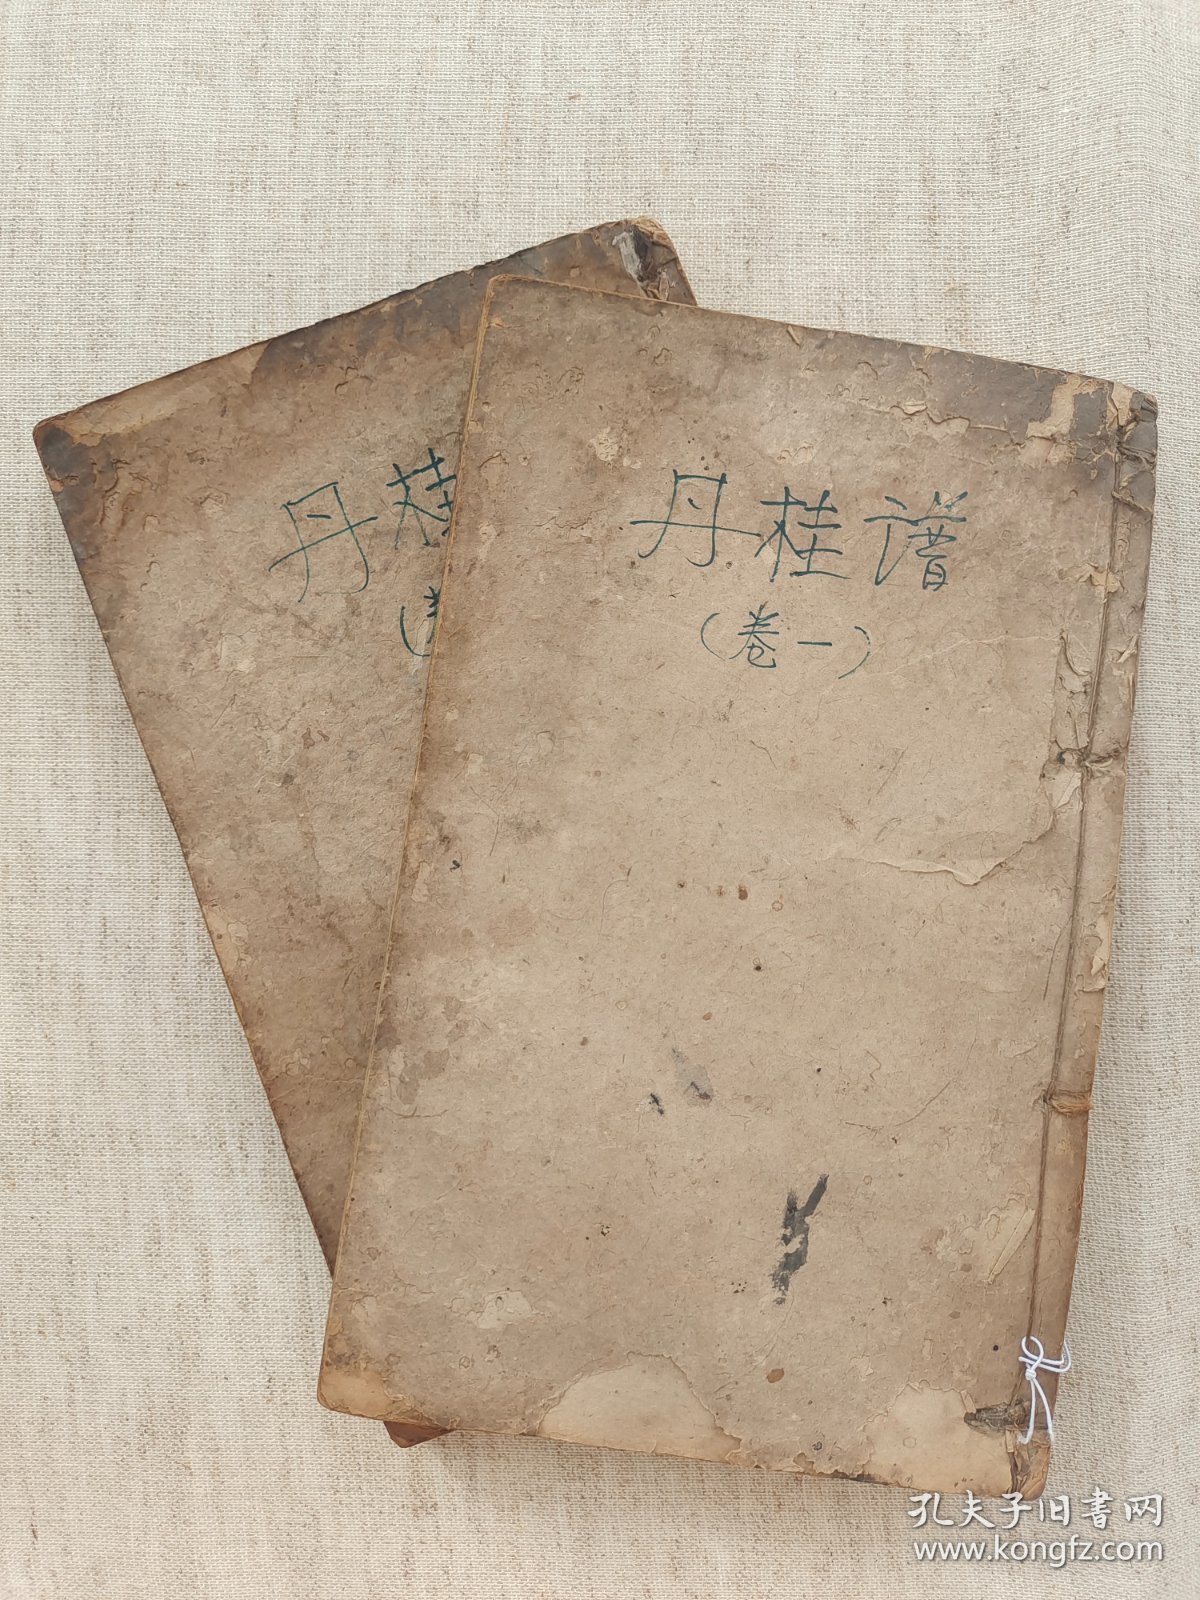 丹桂
丹桂谱
（卷一）
孔夫子旧书网
www.kongfz.com